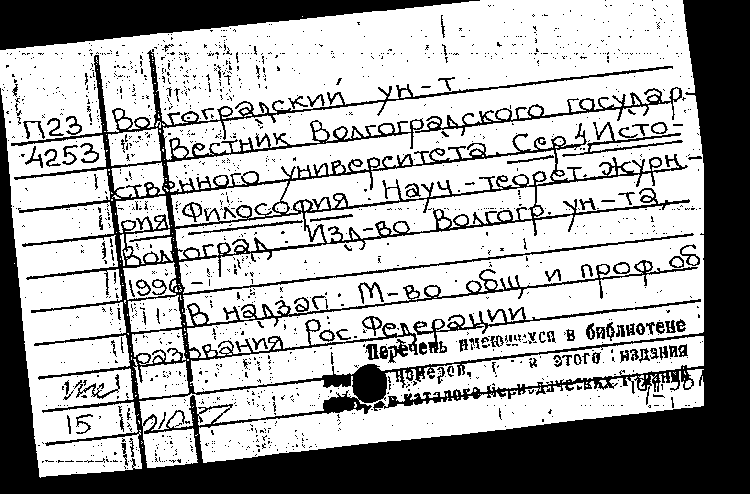 П23 Волгоградский ун-т
4253 Вестник Волгоградского государ-
ственного университета. Сер 4, Исто-
рия. Философия : Науч.-теорет. журн.-
Волгоград : Изд-во Волгогр. ун-та,
1996-
В надзаг: М-во общ. и проф. об-
разования Рос. Федерации.
Перечень имеющихся в библиотеке
номеров, этого издания
в каталоге периодических изданий
15